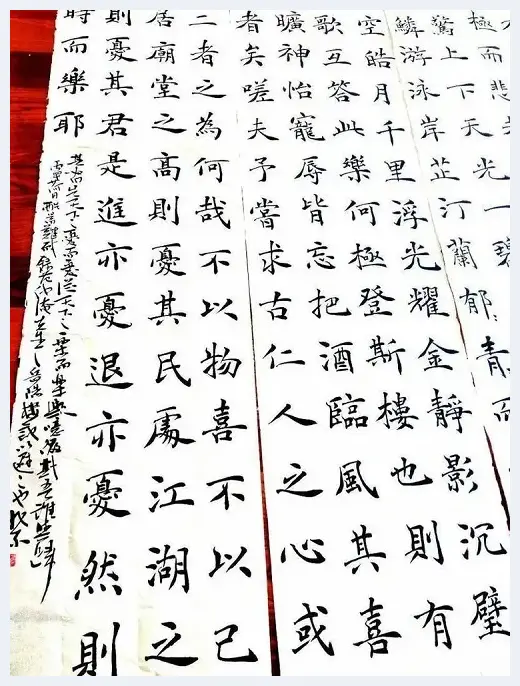 極而悲
驚上下天光一碧
鱗游泳岸芷汀蘭郁々青而
空皓月千里浮光耀金靜影沉璧
歌互答此樂何極登斯樓也則有
曠神怡寵辱皆忘把酒臨風其喜
者矣嗟夫予嘗求古仁人之心或
二者之為何哉不以物喜不以己
居廟堂之高則憂其民處江湖之
則憂其君是進亦憂退亦憂然則
時而樂耶
天下之憂而憂後天下之樂而樂與噫微斯吾誰與歸